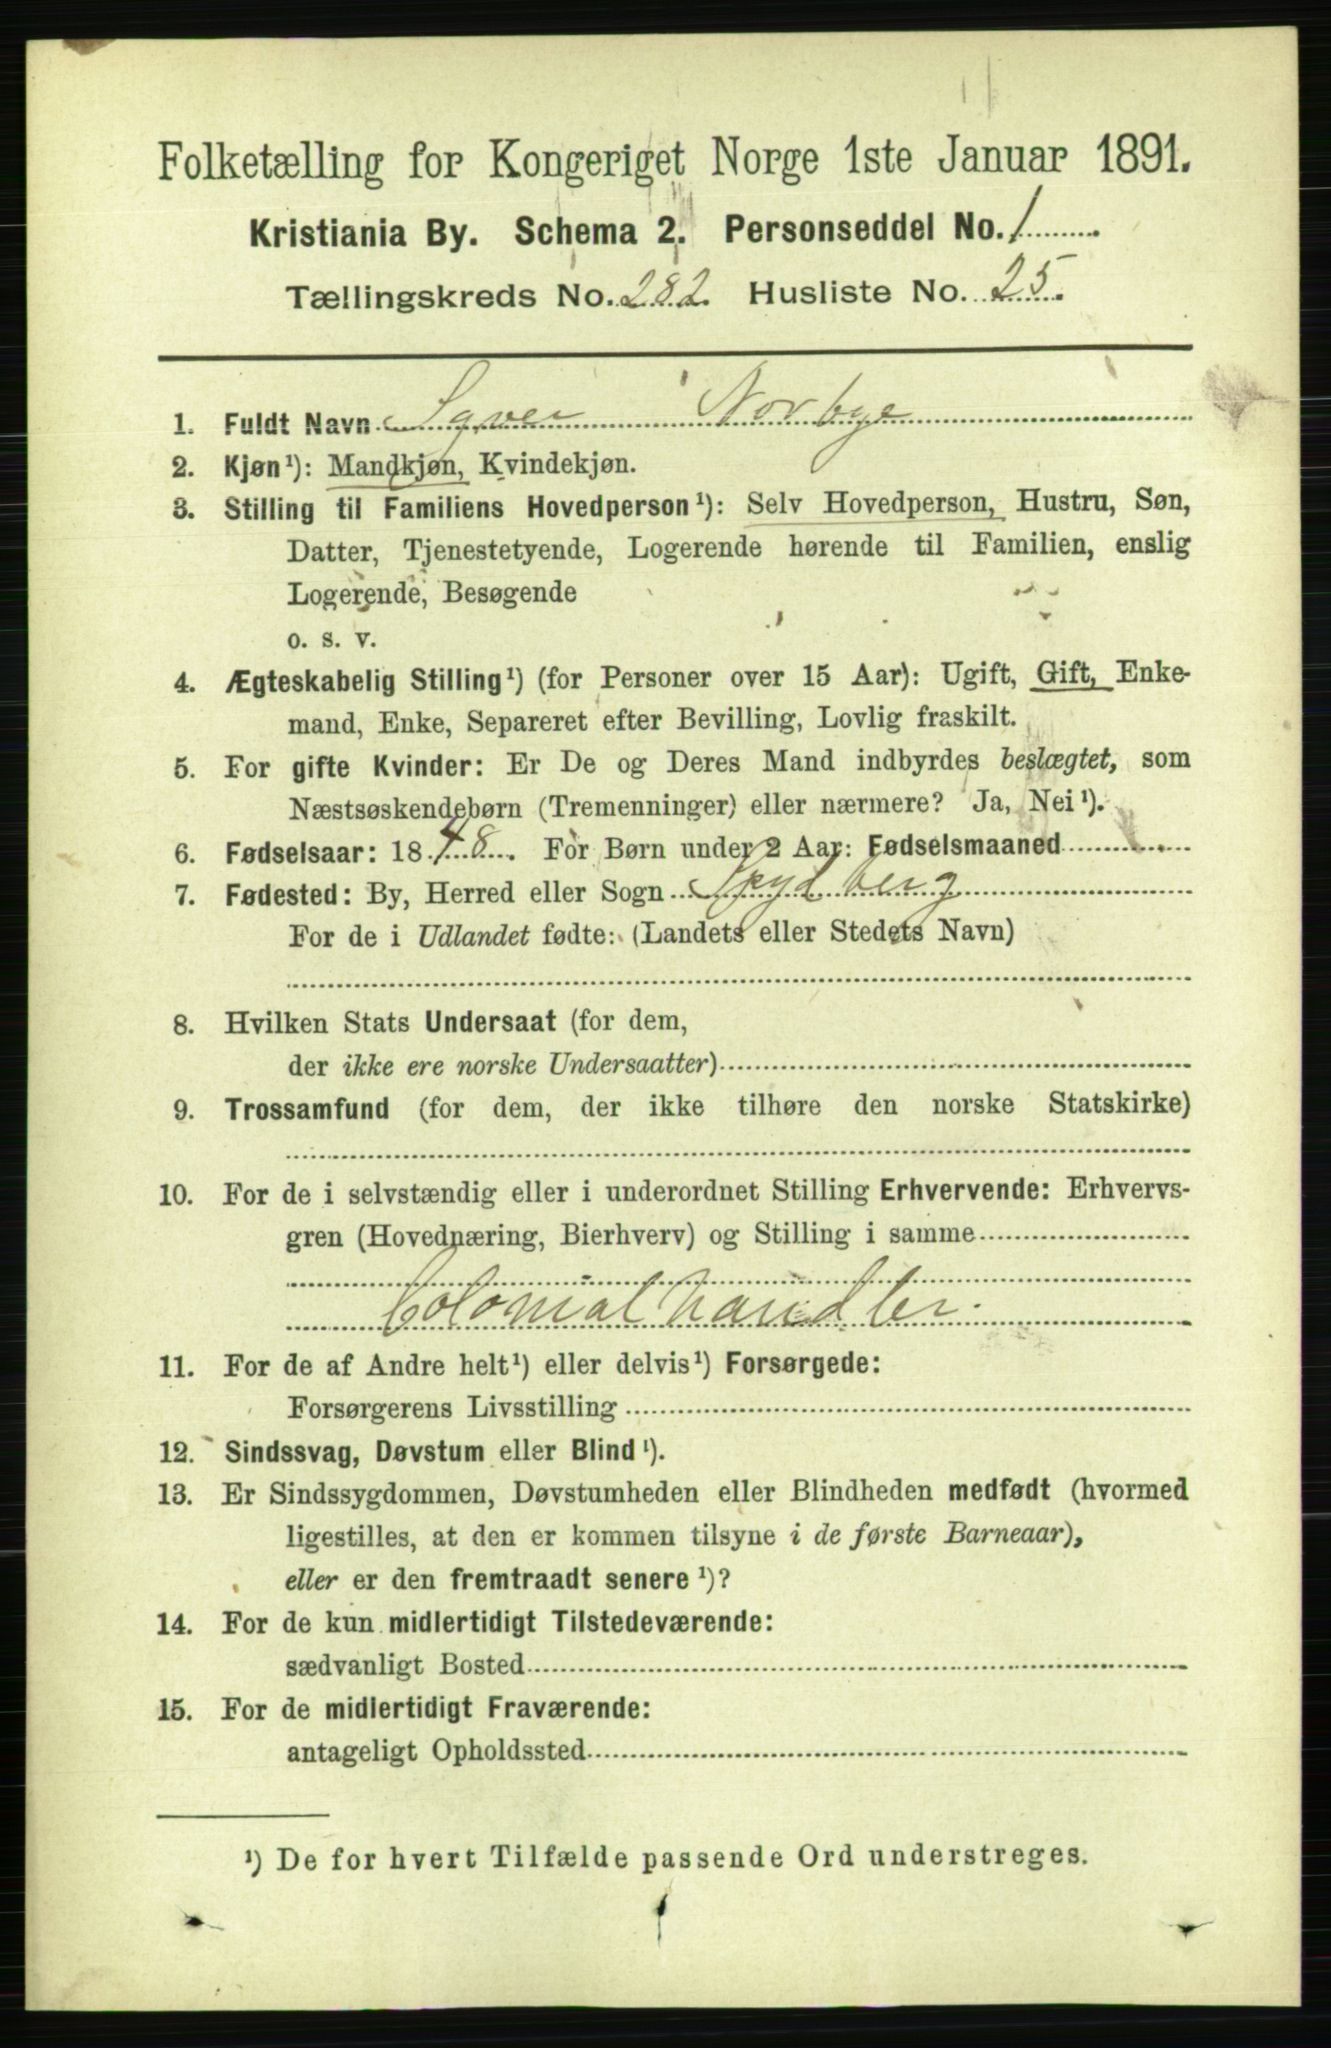 Folketælling for Kongeriget Norge 1ste Januar 1891.
Kristiania By. Schema 2. Personseddel No. 1
Tællingskreds No. 282. Husliste No. 25.
1. Fuldt Navn Syver Norbye
2. Kjøn¹): Mandkjøn, Kvindekjøn.
3. Stilling til Familiens Hovedperson¹): Selv Hovedperson, Hustru, Søn,
Datter, Tjenestetyende, Logerende hørende til Familien, enslig
Logerende, Besøgende
o. s. v.
4. Ægteskabelig Stilling¹) (for Personer over 15 Aar): Ugift, Gift, Enke-
mand, Enke, Separeret efter Bevilling, Lovlig fraskilt.
5. For gifte Kvinder: Er De og Deres Mand indbyrdes beslægtet, som
Næstsøskendebørn (Tremenninger) eller nærmere? Ja, Nei¹).
6. Fødselsaar: 1848. For Børn under 2 Aar: Fødselsmaaned
7. Fødested: By, Herred eller Sogn Spydberg
For de i Udlandet fødte: (Landets eller Stedets Navn)
8. Hvilken Stats Undersaat (for dem,
der ikke ere norske Undersaatter)
9. Trossamfund (for dem, der ikke tilhøre den norske Statskirke)
10. For de i selvstændig eller i underordnet Stilling Erhvervende: Erhvervs-
gren (Hovednæring, Bierhverv) og Stilling i samme
Colonialhandler.
11. For de af Andre helt¹) eller delvis¹) Forsørgede:
Forsørgerens Livsstilling
12. Sindssvag, Døvstum eller Blind¹).
13. Er Sindssygdommen, Døvstumheden eller Blindheden medfødt (hvormed
ligestilles, at den er kommen tilsyne i de første Barneaar),
eller er den fremtraadt senere¹)?
14. For de kun midlertidigt Tilstedeværende:
sædvanligt Bosted
15. For de midlertidigt Fraværende:
antageligt Opholdssted
¹) De for hvert Tilfælde passende Ord understreges.